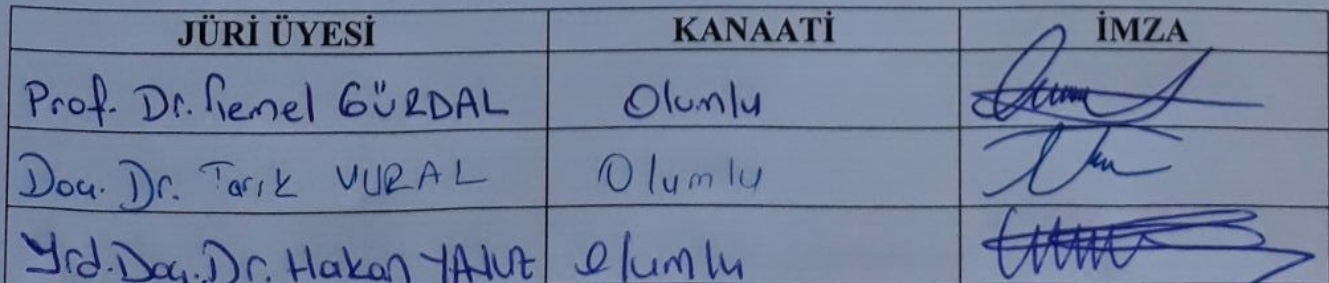 JÜRİ ÜYESİ KANAATİ İMZA
Prof. Dr. Kemal GÜRDAL Olumlu
Doç. Dr. Tarık VURAL Olumlu
Yrd. Doç. Dr. Hakan YAVUZ Olumlu